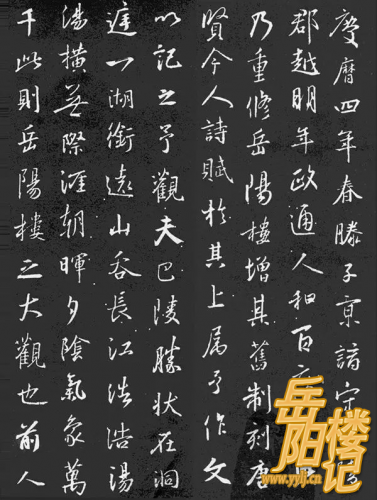 慶曆四年春滕子京謫守
郡越明年政通人和百
乃重修岳陽樓增其舊制刻唐
賢今人詩賦於其上屬予作文
以記之予觀夫巴陵勝狀在洞
庭一湖銜遠山吞長江浩浩湯
湯橫無際涯朝暉夕陰氣象萬
千此則岳陽樓之大觀也前人
岳阳楼记
www.yylj.cn